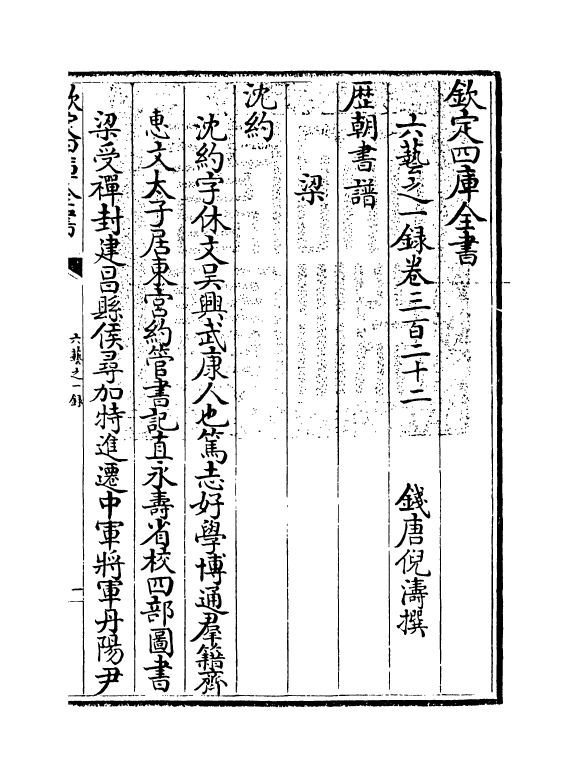 欽定四庫全書
六藝之一録卷三百二十二
錢唐倪濤撰
歴朝書譜
梁
沈約
沈約字休文吴興武康人也篤志好學博通羣籍齊
惠文太子居東宫約管書記直永壽省校四部圖書
梁受禪封建昌縣侯尋加特進遷中軍將軍丹陽尹
欽定四庫全書
六藝之一録
一